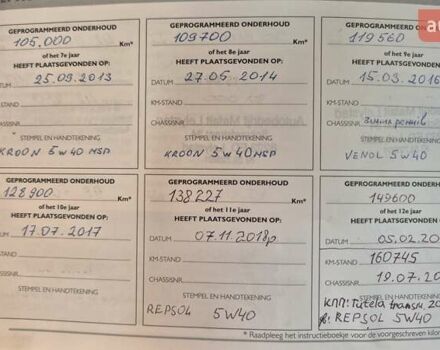 GEPROGRAMMEERD ONDERHOUD
105.000 Km*
of het 7e jaar
HEEFT PLAATSGEVONDEN OP:
DATUM 25.09.2013
KM-STAND
CHASSISNR.
STEMPEL EN HANDTEKENING
KROON 5W40 MSP
GEPROGRAMMEERD ONDERHOUD
109700 Km*
of het 8e jaar
HEEFT PLAATSGEVONDEN OP:
DATUM 27.05.2014
KM-STAND
CHASSISNR.
STEMPEL EN HANDTEKENING
KROON 5W40 MSP
GEPROGRAMMEERD ONDERHOUD
119560
of het 9e jaar
HEEFT PLAATSGEVONDEN OP:
DATUM 15.03.2016
KM-STAND
CHASSISNR.
STEMPEL EN HANDTEKENING
VENOL 5W40
GEPROGRAMMEERD ONDERHOUD
128900 Km*
of het 10e jaar
HEEFT PLAATSGEVONDEN OP:
DATUM 17.07.2017
KM-STAND
CHASSISNR.
STEMPEL EN HANDTEKENING
GEPROGRAMMEERD ONDERHOUD
138227 Km*
of het 11e jaar
HEEFT PLAATSGEVONDEN OP:
DATUM 07.11.2018р
KM-STAND
CHASSISNR.
STEMPEL EN HANDTEKENING
REPSOL 5W40
GEPROGRAMMEERD ONDERHOUD
149600
of het 12e
HEEFT PLAATSGEVONDEN OP:
DATUM 05.02.20
KM-STAND 160745
CHASSISNR. 19.07.20
STEMPEL EN HANDTEKENING
КПП: Tutela
REPSOL 5W40
* Raadpleeg het instructieboekje voor de voorgeschreven